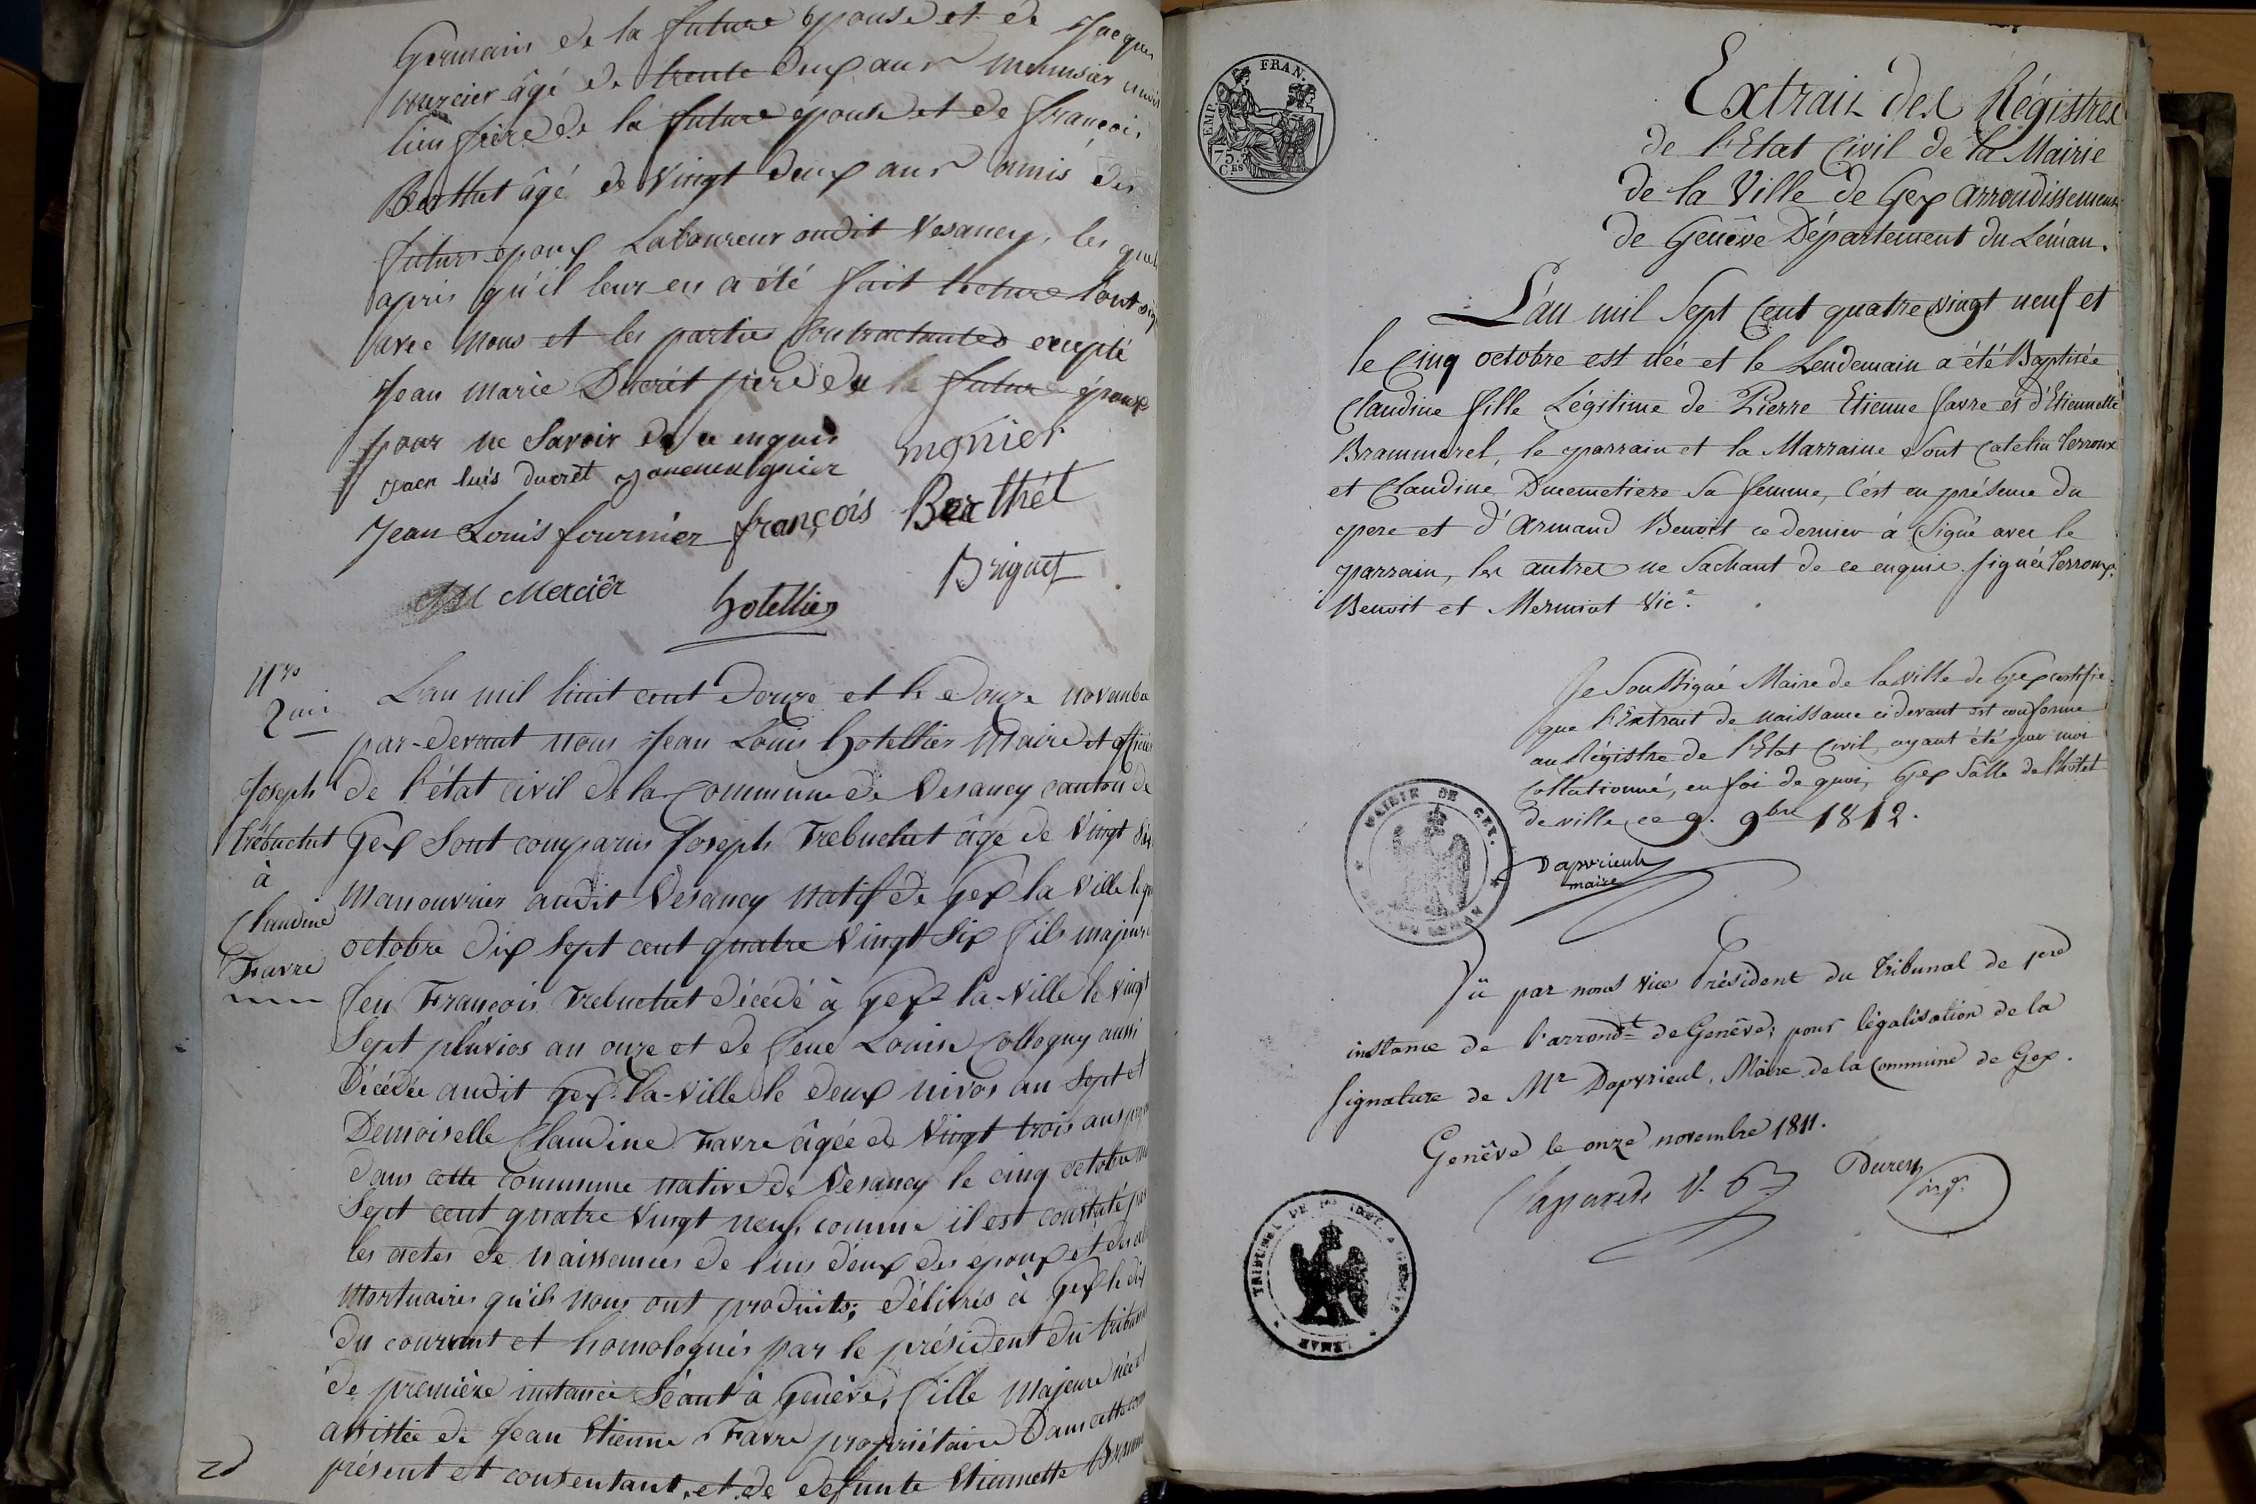 Germain de la future épouse et de Jacques
Mercier âgé de trente deux ans menuisier
lieu frère de la future épouse et de François
Berthet âgé de vingt deux ans amis des
futurs epoux Laboureur audit Vesancy, les quels
après qu'il leur en a été fait lecture l'ont
avec nous et les parties contractantes excepté
Jean Marie Ducrét père de la future épouse
pour ne savoir de ce enquis
Jaen luis ducrét mgnier
Jean Louis fournier françois Berthét
JM Mercièr hotellier Briguet
2
Joseph
trébuchet
à
Claudine
Favre
L'an mil huit cent douze et le douze novembre
par-devant nous Jean Louis hotellier Maire et officier
de l'état civil de la Commune de Vesancy canton de
Gex sont comparus Joseph Trebuchet âgé de vingt six
manouvrier audit Vesancy natif de Gex la ville le
octobre dix sept cent quatre vingt six fils majeur
feu François Trebuchet décédé à Gex-la-ville le vingt
sept pluvios an onze et de feue Louise Collogny aussi
décédée audit Gex-la-ville le deux nivos an sept et
Demoiselle Claudine Favre âgée de vingt trois ans
dans cette commune native de Vesancy le cinq octobre
sept cent quatre vingt neuf, comme il est constaté par
les actes de naissances de l'un d'eux des epoux et des
mortuaires qu'ils nous ont produits; délivrés à Gex le dix
du courant et homologués par le président du tribunal
de première instance séant à Genève, fille majeure
assistée de Jean Etienne Favre propriétaire dans cette
présent et consentant, et de defunte Etiennette
EMP. FRAN.
75.
CES
Extrait des Régistres
de l'Etat Civil de la Mairie
de la Ville de Gex arrondissement
de Genêve Département du Léman.
L'an mil Sept Cent quatre vingt neuf et
le Cinq octobre est née et le Lendemain a été Baptisée
Claudine fille Légitime de Pierre Etienne favre et d'Etiennette
Brammerel, le parrain et la Marraine sont Catelin terroux
et Claudine Ducmetiere sa femme, c'est en présence du
pere et d'Armand Benoit ce dernier à signé avec le
parrain, les autres ne sachant de ce enquis. signés terroux,
Benoit et Mermint Vic.e
Je soussigné Maire de la ville de Gex certifie
que l'Extrait de naissance ci devant est conforme
au Régistre de l'Etat Civil, ayant été par moi
Collationné, en foi de quoi, Gex salle de l'hôtel
de ville ce 9. 9bre 1812.
MAIRIE DE GEX.
Dapvrieul
maire
Vû par nous vice Président du Tribunal de pre
instance de l'arrondt de Genêve; pour légalisation de la
signature de Mr Dapvrieul, Maire de la Commune de Gex.
Genêve le onze novembre 1811.
Claparede V. P.
TRIBUNAL DE 1RE INST. A GENEVE
LEMAN